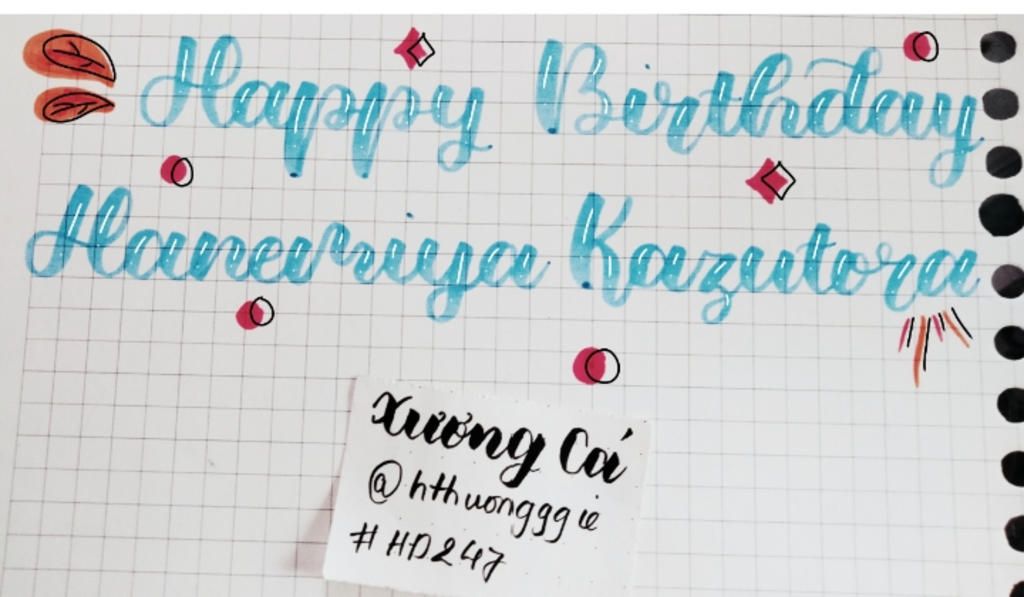 Happy Birthday
Hanemiya Kazutora
Xương Cá
@hthuongggie
#HD247